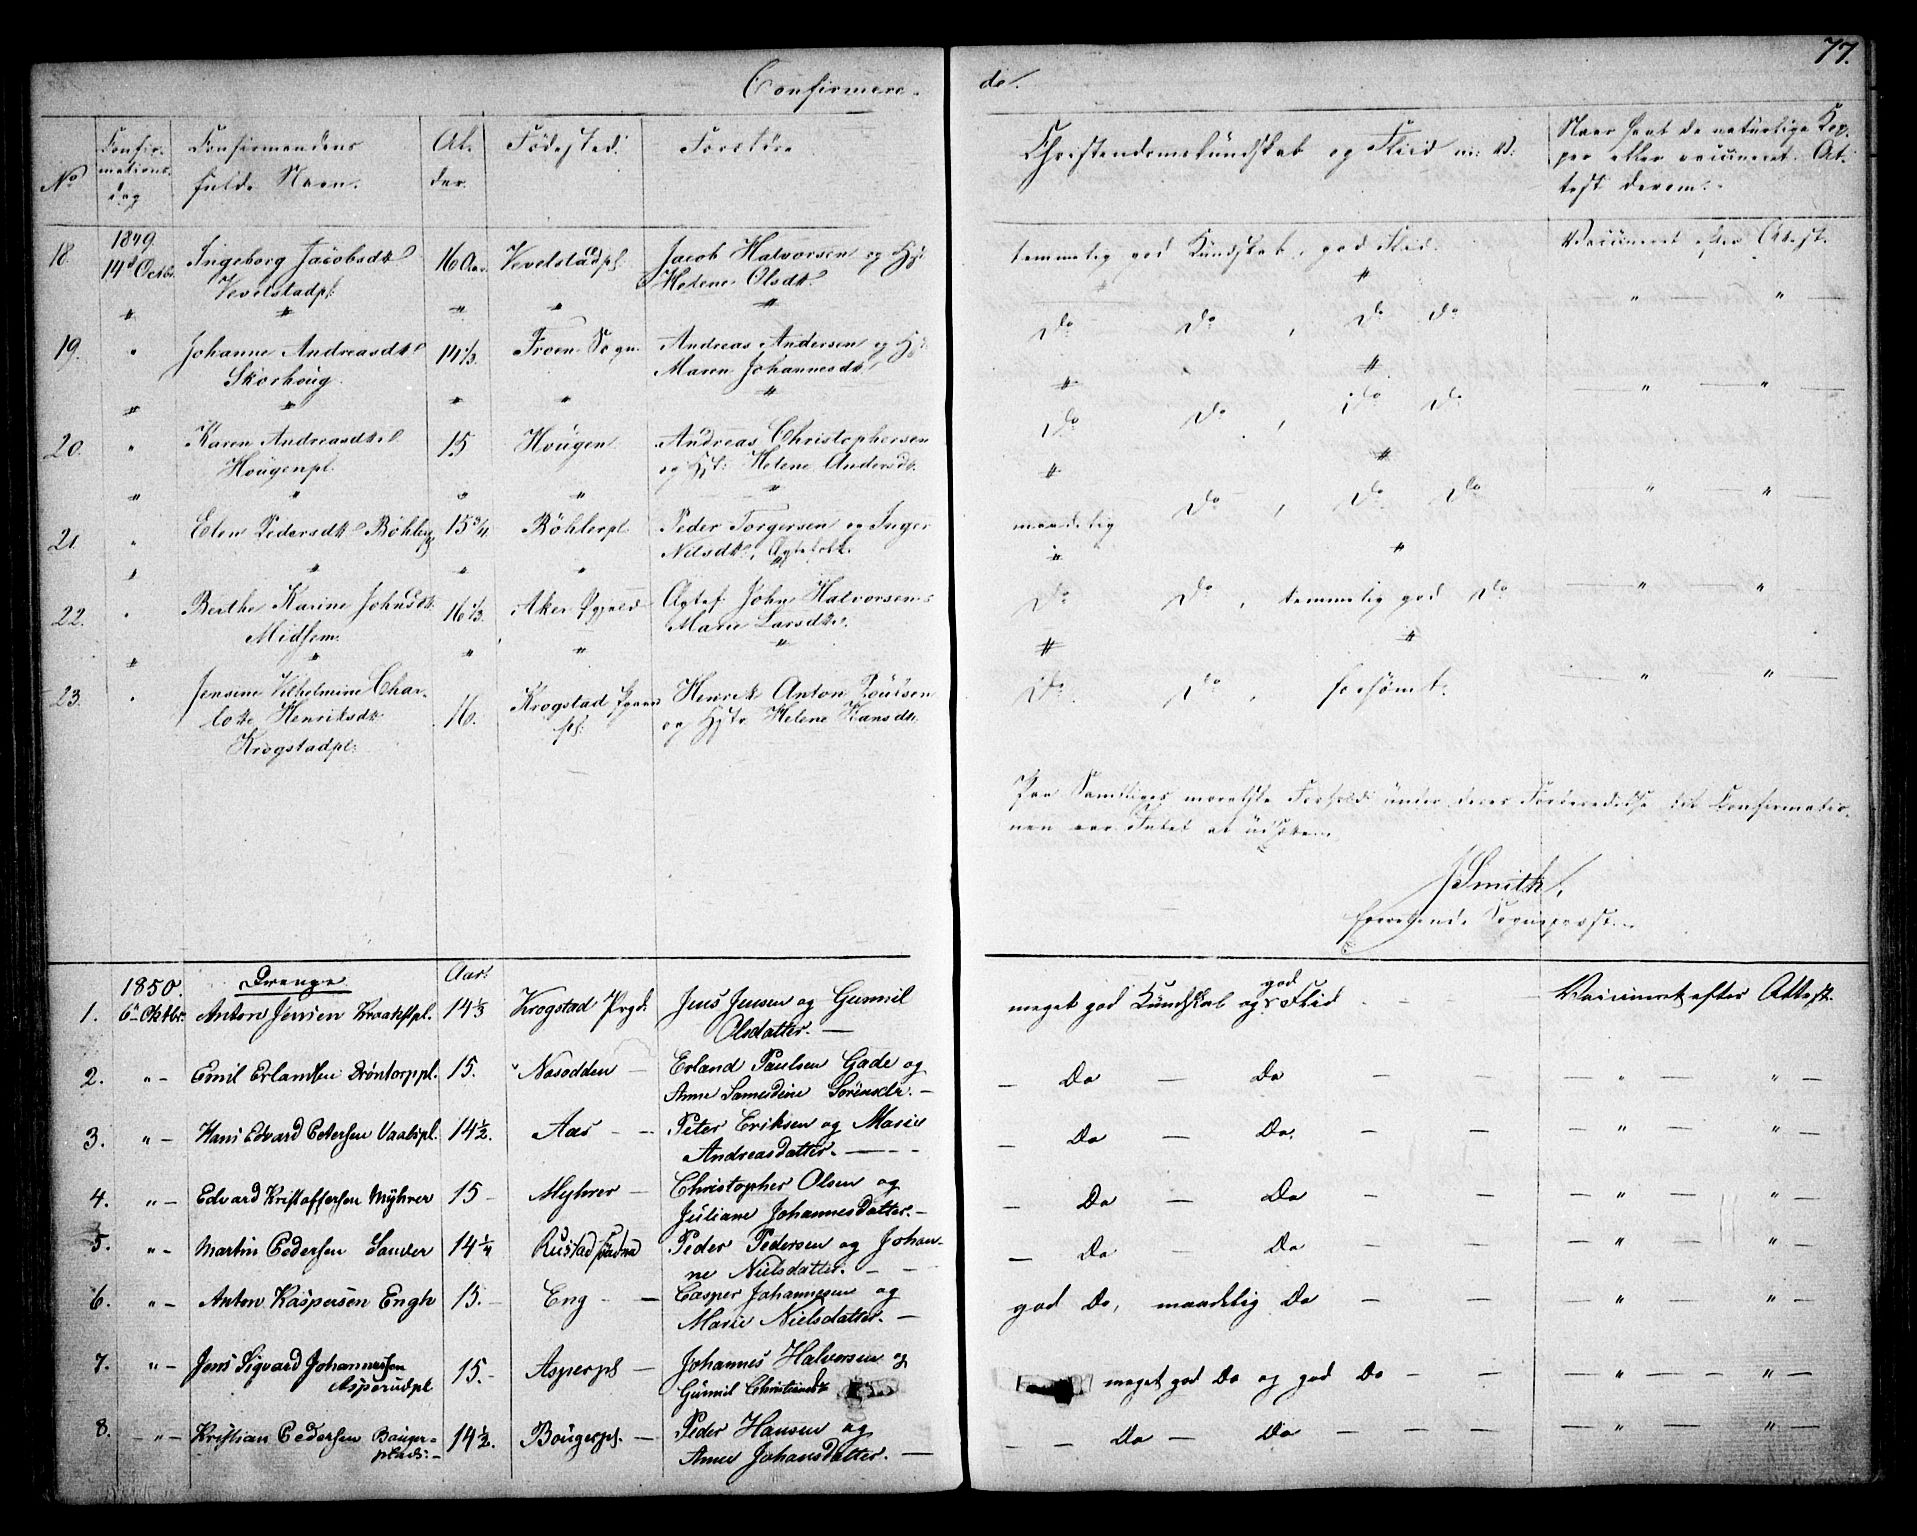 77.
Confirmere-
de.
No
Confir-
mations-
dag
Confirmandens
fulde Navn.
Al-
der.
Fødested.
Forældre
Christendomskundskab og Fliid m: V:
Naar havt de naturlige Kop-
per eller vaccineret. At-
test derom.
18.
1849.
14de Octbr.
Ingeborg Jacobsdtr
Vevelstadpl.
16 Aar
Vevelstadpl.
Jacob Halvorsen og Hst
Helene Olsdtr.
temmelig god Kundskab, god Flid.
Vaccineret efter Attest.
19.
"
Johanne Andreasdtr
Skorhoug.
14 1/3.
Froen Sogn.
Andreas Andersen og H
Maren Johannesdtr
Do Do, Do Do
— " — " —
20.
"
Karen Andreasdtr
Hougenpl.
15
Hougen
Andreas Christophersen
og Hst: Helene Andersdtr.
Do Do, Do Do
— " — " —
21.
"
Elen Pedersdtr Böhler
15 3/4
Böhlerpl.
Peder Torgersen og Inger
Nilsdtr, Ægtefolk.
maadelig Do, Do Do
— " — " —
22.
"
Berthe Karine Johnsdtr
Midsem.
16 1/3.
Aker Pgjæld
Ægtef John Halvorsen
Marie Larsdtr.
Do Do, temmelig god Do
— " — " —
23.
"
Jensine Vilhelmine Char-
lotte Henriksdtr
Krogstadpl:
16.
Krogstad
pl:
Henrik Anton Poulsen
og Hstr Helene Hansdtr
Do Do, forsömt.
— " — " —
Paa Samtliges moralske Forhold under deres Forberedelse til Confirmatio-
nen var Intet at udsætte.
J Smith,
Sognepræst.
1850.
Drenge
Aar
1.
6te Oktbr.
Anton Jensen Kraakstpl.
14 1/3
Krogstad Prgd.
Jens Jensen og Gunnil
Olsdatter. —
meget god Kundskab og god Flid
Vaccineret efter Attest.
2.
"—
Emil Erlandsen Dröntorppl.
15.
Nasodden —
Erland Paulsen Gade og
Anne Samuedine Sörensdr. —
— Do — Do — —
— " — " —
3.
"—
Hans Edvard Petersen Vaabspl.
14 1/2.
Aas — —
Peter Eriksen og Marie
Andreasdatter. —
— Do — Do. — —
— " — " —
4.
"—
Edvard Kristoffersen Myhrer
15 —
Myhrer —
Christopher Olsen og
Juliane Johannesdatter. —
— Do — Do — —
— " — " —
5.
"—
Martin Pedersen Sander
14 1/4
Rustad
Peder Pedersen og Johan-
ne Nielsdatter. —
— Do — Do — —
— " — " —
6.
"—
Anton Kaspersen Engh
15. —
Eng — —
Casper Johannesen og
Marie Nielsdatter. —
god Do, maadelig Do — —
— " — " —
7.
"—
Jens Sigvard Johannessen
Asperudpl
15. —
Asperpl —
Johannes Halvorsen og
Gunnil Christiansdtr
meget god Do og god Do — —
— " — " —
8.
— "—
Kristian Pedersen Bauger-
plads: —
14 1/2.
Bougerpl. —
Peder Hansen og
Anne Johansdatter. —
— — Do — Do — — —
— " — " —